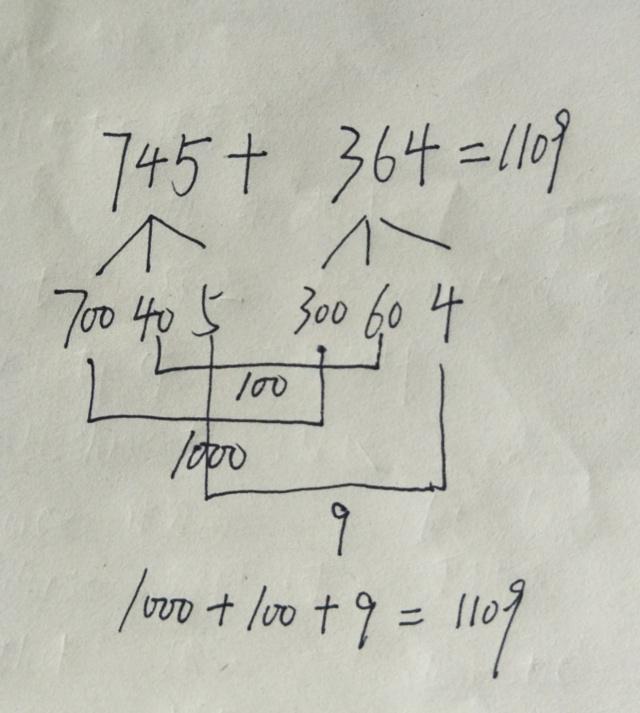 745 + 364 = 1109
700 40 5 300 60 4
100
1000
9
1000 + 100 + 9 = 1109